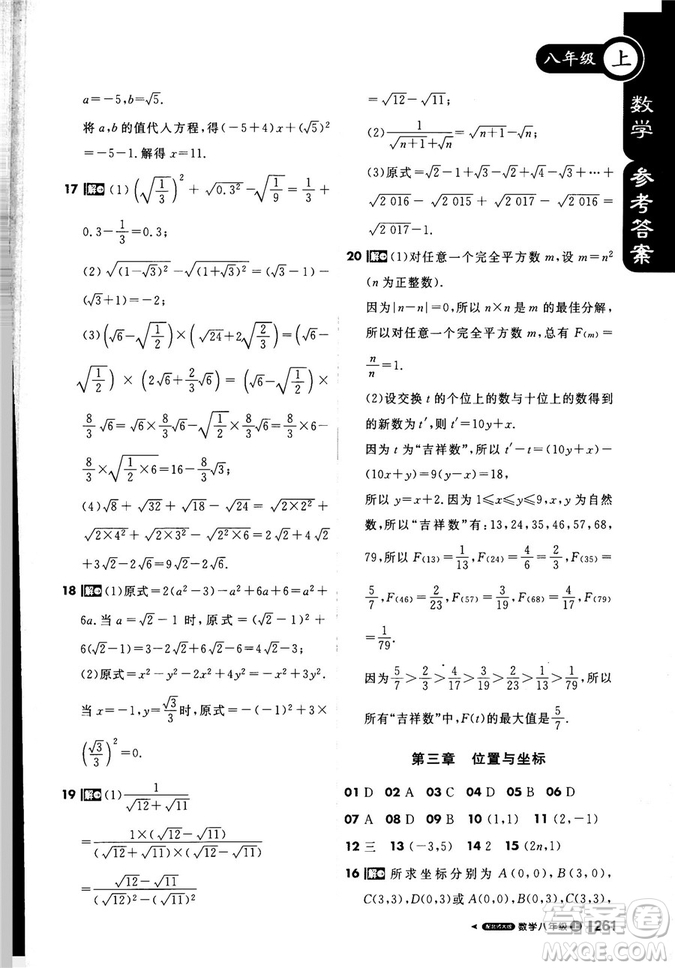 八年级 上
数学 参考答案
a=-5,b=√5.
将a,b的值代人方程,得(-5+4)x+(√5)²
=-5-1.解得x=11.
17 解 (1)(√(1/3))²+√(0.3²)-√(1/9)=1/3+
0.3-1/3=0.3;
(2)√((1-√3)²)-√((√3-2)²)=√3-1-(2-
√3)=√3-1-2+√3=2√3-3;
(3)(√6-√(1/2))×(√24+2√(2/3))=(√6-
√(1/2))×(2√6+2/3√6)=(√6-√(1/2))×
8/3√6=√6×8/3√6-√(1/2)×8/3√6=8/3×6-
8/3×√(1/2×6)=16-8/3√3;
(4)√8+√32+√18-√24=√(2×2²)+
√(2×4²)+√(2×3²)-√(2²×6)=2√2+4√2+
3√2-2√6=9√2-2√6.
18 解 (1)原式=2(a²-3)-a²+6a+6=a²+
6a.当a=√2-1时,原式=(√2-1)²+
6(√2-1)=3-2√2+6√2-6=4√2-3;
(2)原式=x²-y²-2x²+4y²=-x²+3y².
当x=-1,y=√3/3时,原式=-(-1)²+3×
(√3/3)²=0.
19 解 (1)1/(√12+√11)
=1×(√12-√11)/((√12+√11)(√12-√11))
=(√12-√11)/(12-11)
=√12-√11;
(2)1/(√(n+1)+√n)=√(n+1)-√n;
(3)原式=√2-1+√3-√2+√4-√3+…+
√2 016-√2 015+√2 017-√2 016=
√2 017-1.
20 解 (1)对任意一个完全平方数m,设m=n²
(n为正整数).
因为|n-n|=0,所以n×n是m的最佳分解,
所以对任意一个完全平方数m,总有F(m)=
n/n=1.
(2)设交换t的个位上的数与十位上的数得到
的新数为t′,则t′=10y+x.
因为t为“吉祥数”,所以t′-t=(10y+x)-
(10x+y)=9(y-x)=18,
所以y=x+2.因为1≤x≤y≤9,x,y为自然
数,所以“吉祥数”有:13,24,35,46,57,68,
79,所以F(13)=1/13,F(24)=4/6=2/3,F(35)=
5/7,F(46)=2/23,F(57)=3/19,F(68)=4/17,F(79)
=1/79.
因为5/7>2/3>4/17>3/19>2/23>1/13>1/79,
所以所有“吉祥数”中,F(t)的最大值是5/7.
第三章 位置与坐标
01 D 02 A 03 C 04 D 05 B 06 D
07 A 08 D 09 A 10 (1,1) 11 (2,-1)
12 三 13 (-3,5) 14 2 15 (2n,1)
16 解 所求坐标分别为A(0,0),B(3,0),
C(3,3),D(0,3)或A(0,0),B(0,3),C(3,3),
配北师大版 数学八年级 上 261